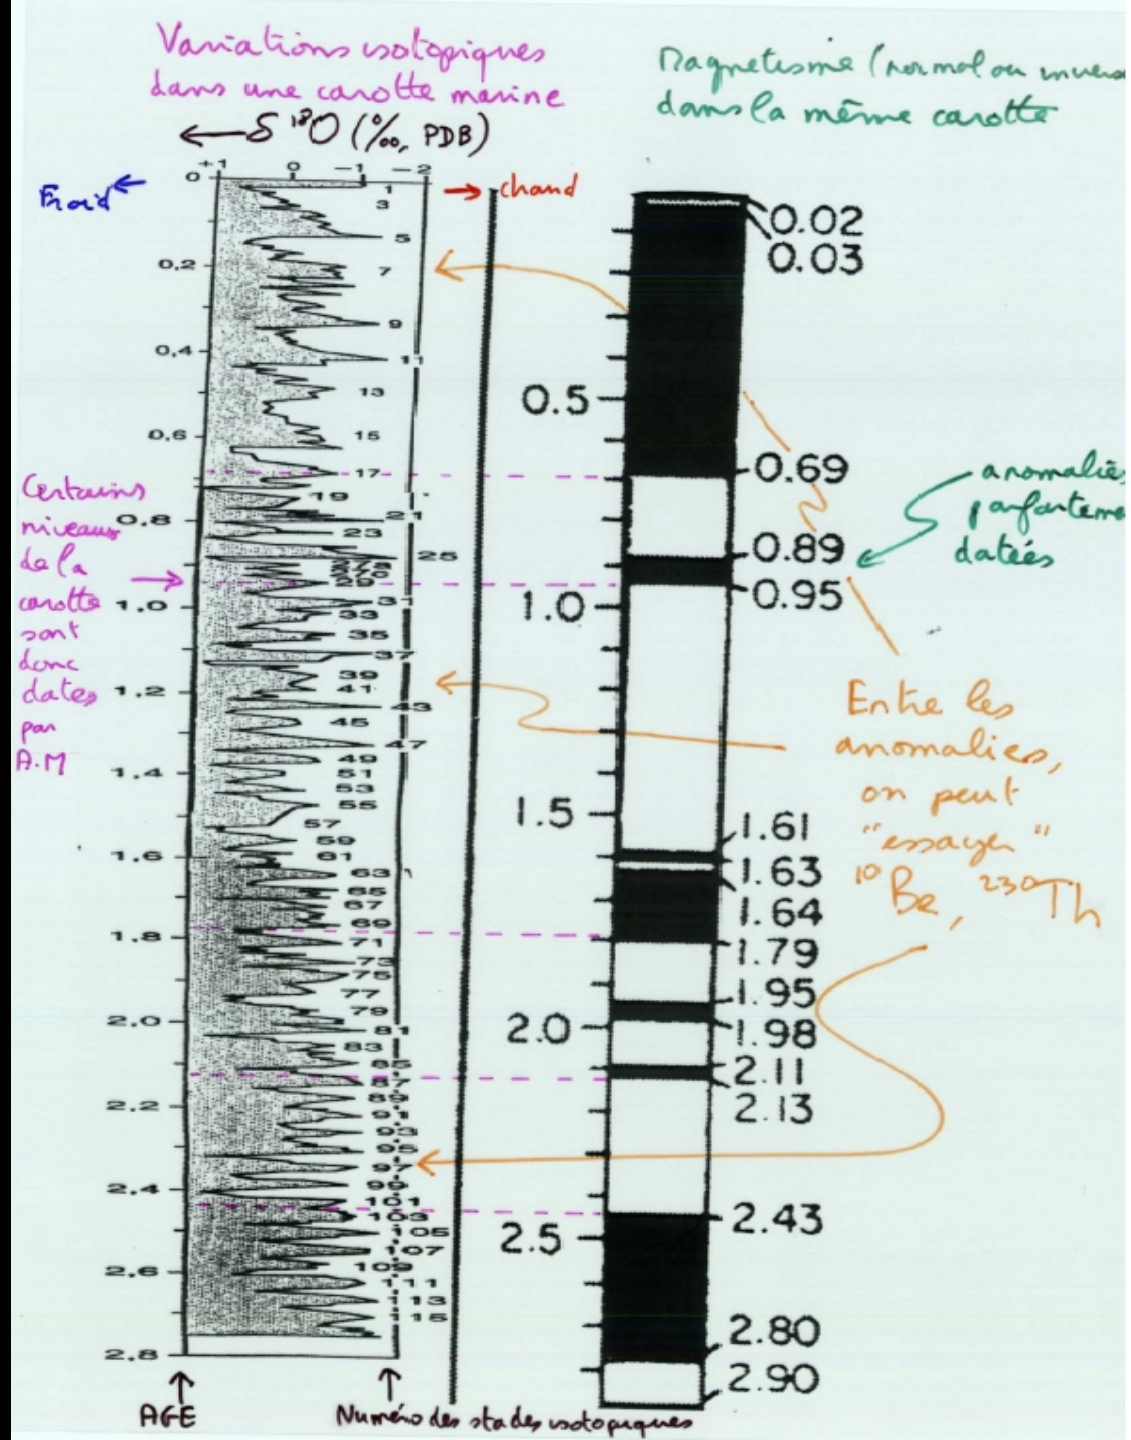 Variations isotopiques
dans une carotte marine
← δ ¹⁸O (‰, PDB)
Magnetisme (normal ou inverse
dans la même carotte
+1 0 -1 -2
Froid ←
→ chaud
0
0,2
0,4
0,6
0,8
1.0
1.2
1.4
1.6
1.8
2.0
2.2
2.4
2.6
2.8
1
3
5
7
9
11
13
15
17
19
21
23
25
29
31
33
35
37
39
41
43
45
47
49
51
53
55
57
59
61
63
65
67
69
71
73
75
77
79
81
83
85
87
89
91
93
95
97
99
101
103
105
107
109
111
113
115
Certains
niveaux
de la
carotte
sont
donc
datés
par
A.M
0.5
1.0
1.5
2.0
2.5
0.02
0.03
0.69
0.89
0.95
1.61
1.63
1.64
1.79
1.95
1.98
2.11
2.13
2.43
2.80
2.90
anomalies
parfaiteme
datées
Entre les
anomalies,
on peut
"essayer"
¹⁰Be, ²³⁰Th
AGE
Numéro des stades isotopiques